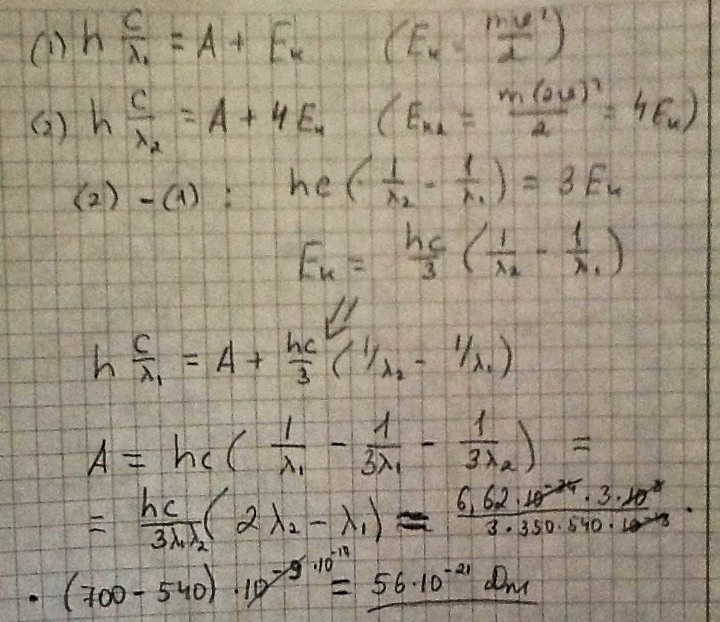 (1) h c/λ₁ = A + Eₖ (Eₖ = mυ²/2)
(2) h c/λ₂ = A + 4Eₖ (Eₖ₂ = m(2υ)²/2 = 4Eₖ)
(2) - (1) : hc (1/λ₂ - 1/λ₁) = 3Eₖ
Eₖ = hc/3 (1/λ₂ - 1/λ₁)
h c/λ₁ = A + hc/3 (1/λ₂ - 1/λ₁)
A = hc ( 1/λ₁ - 1/3λ₁ - 1/3λ₂ ) =
= hc/3λ₁λ₂ ( 2λ₂ - λ₁ ) = 6,62·10⁻³⁴·3·10⁸/3·350·540·10⁻¹⁸ ·
· (700 - 540) · 10⁻⁹ ·10⁻¹⁰ = 56·10⁻²¹ Дж